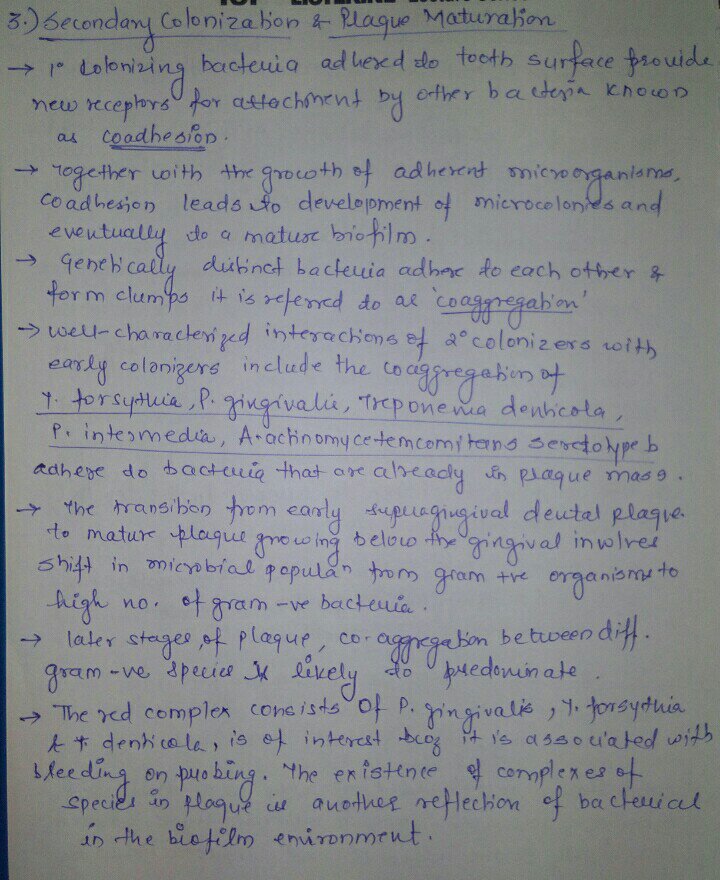 3.) Secondary Colonization & Plaque Maturation
→ 1° Colonizing bacteria adhered to tooth surface provide
new receptors for attachment by other bacteria known
as coadhesion.
→ Together with the growth of adherent microorganisms,
coadhesion leads to development of microcolonies and
eventually to a mature biofilm.
→ Genetically distinct bacteria adhere to each other &
form clumps it is referred to as 'coaggregation'
→ well-characterized interactions of 2° colonizers with
early colonizers include the coaggregation of
T. forsythia, P. gingivalis, Treponema denticola,
P. intermedia, A. actinomycetemcomitans serotype b
adhere to bacteria that are already in plaque mass.
→ The transition from early supragingival dental plaque
to mature plaque growing below the gingival involves
shift in microbial populan from gram +ve organisms to
high no. of gram -ve bacteria.
→ later stages of plaque, co-aggregation between diff.
gram -ve species is likely to predominate.
→ The red complex consists of P. gingivalis, T. forsythia
& T denticola, is of interest bcoz it is associated with
bleeding on probing. The existence of complexes of
species in plaque is another reflection of bacterial
in the biofilm environment.